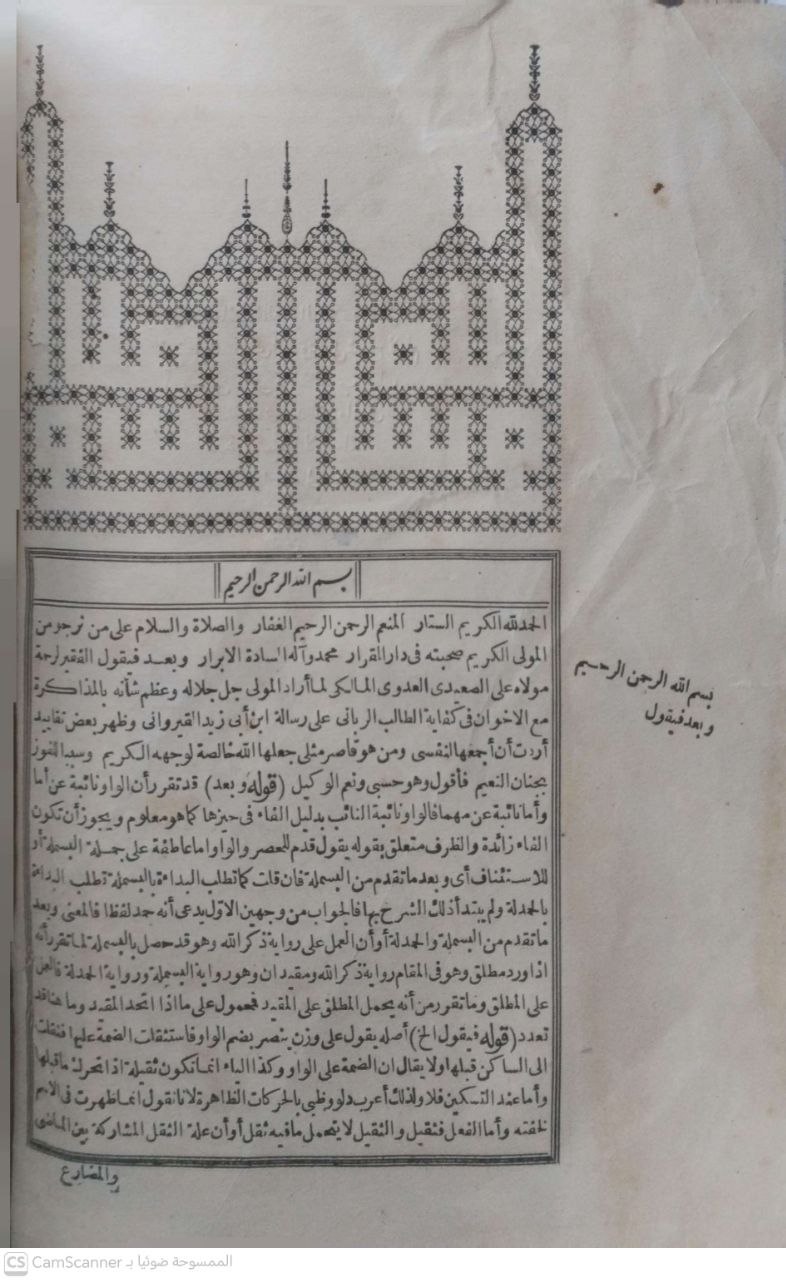 بسم الله الرحمن الرحيم
الحمد لله الكريم الستار المنعم الرحمن الرحيم الغفار والصلاة والسلام على من نرجو من
المولى الكريم صحبته فى دار القرار محمد وآله السادة الابرار وبعد فيقول الفقير لرحمة
مولاه على الصعيدى العدوى المالكى لما أراد المولى جل جلاله وعظم شأنه بالمذاكرة
مع الاخوان فى كفاية الطالب الربانى على رسالة ابن أبى زيد القيروانى وظهر بعض تقاييد
أردت أن أجمعها لنفسى ومن هو قاصر مثلى جعلها الله خالصة لوجهه الكريم وسببا للفوز
بجنان النعيم فأقول وهو حسبى ونعم الوكيل (قوله وبعد) قد تقرر أن الواو نائبة عن أما
وأما نائبة عن مهما فالواو نائبة النائب بدليل الفاء فى حيزها كما هو معلوم ويجوز أن تكون
الفاء زائدة والظرف متعلق بقوله يقول قدم للحصر والواو اما عاطفة على جملة البسملة أو
للاستئناف أى وبعد ما تقدم من البسملة فان قلت كما تطلب البداءة بالبسملة تطلب البداءة
بالحمدلة ولم يبتدأ ذلك الشرح بها فالجواب من وجهين الاول يدعى أنه حمد لفظا فالمعنى وبعد
ما تقدم من البسملة والحمدلة أو أن العمل على رواية ذكر الله وهو قد حصل بالبسملة لما تقرر أنه
اذا ورد مطلق وهو فى المقام رواية ذكر الله ومقيدان وهو رواية البسملة ورواية الحمدلة فالعمل
على المطلق وما تقرر من أنه يحمل المطلق على المقيد فمحمول على ما اذا اتحد المقيد وما هنا قد
تعدد (قوله فيقول الخ) أصله يقول على وزن ينصر بضم الواو فاستثقلت الضمة عليها فنقلت
الى الساكن قبلها ولا يقال ان الضمة على الواو وكذا الياء انما تكون ثقيلة اذا تحرك ما قبلها
وأما عند التسكين فلا ولذلك أعرب دلو وظبى بالحركات الظاهرة لانا نقول انما ظهرت فى الاسم
لخفته وأما الفعل فثقيل والثقيل لا يتحمل ما فيه ثقل أو أن علة الثقل المشاركة بين الماضى
والمضارع
بسم الله الرحمن الرحيم
وبعد فيقول
CS CamScanner الممسوحة ضوئيا بـ